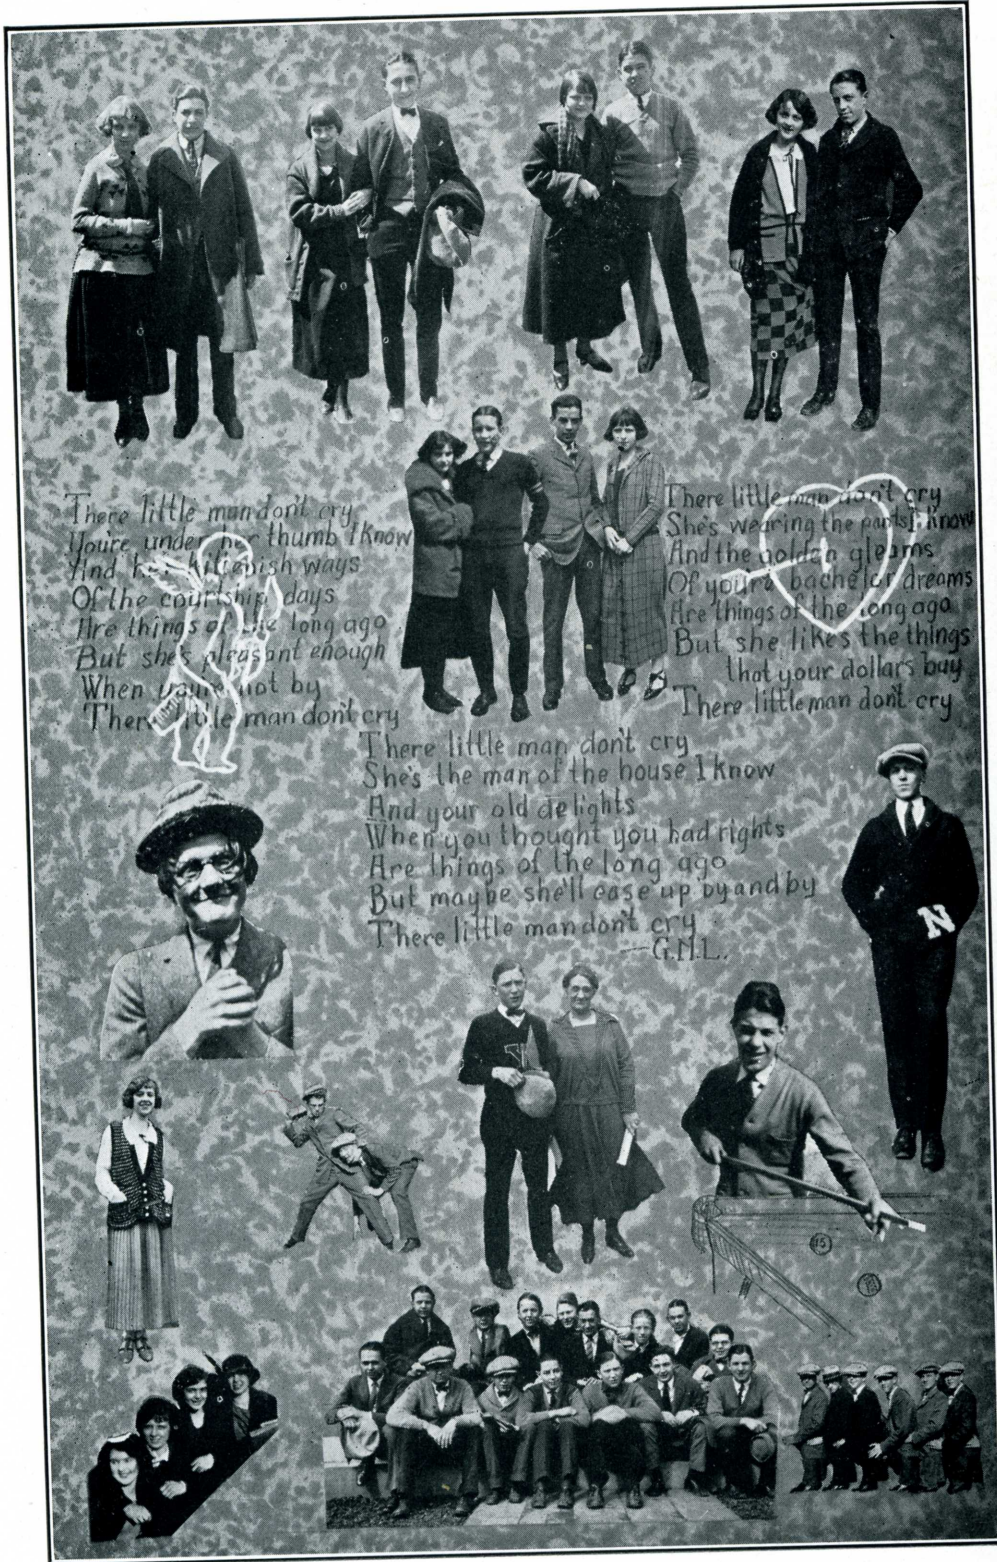 There little man don't cry
You're under her thumb I know
And her kittenish ways
Of the courtship days
Are things of the long ago
But she's pleasant enough
When you're not by
There little man don't cry
There little man don't cry
She's wearing the pants I know
And the golden gleams
Of your bachelor dreams
Are things of the long ago
But she likes the things
that your dollars buy
There little man don't cry
There little man don't cry
She's the man of the house I know
And your old delights
When you thought you had rights
Are things of the long ago
But maybe she'll ease up by and by
There little man don't cry
—G.M.L.
N
15